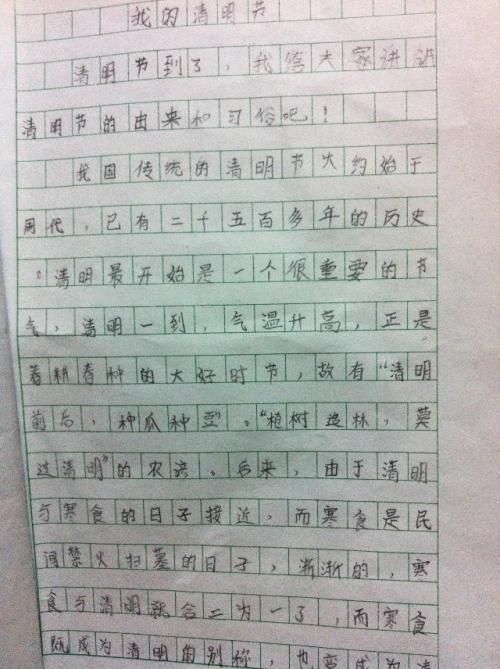 我的清明节
清明节到了,我给大家讲讲
清明节的由来和习俗吧!
我国传统的清明节大约始于
周代,已有二千五百多年的历史
。清明最开始是一个很重要的节
气,清明一到,气温升高,正是
春耕春种的大好时节,故有“清明
前后,种瓜种豆”。“植树造林,莫
过清明”的农谚。后来,由于清明
与寒食的日子接近,而寒食是民
间禁火扫墓的日子,渐渐的,寒
食与清明就合二为一了,而寒食
既成为清明的别称,也变成为清